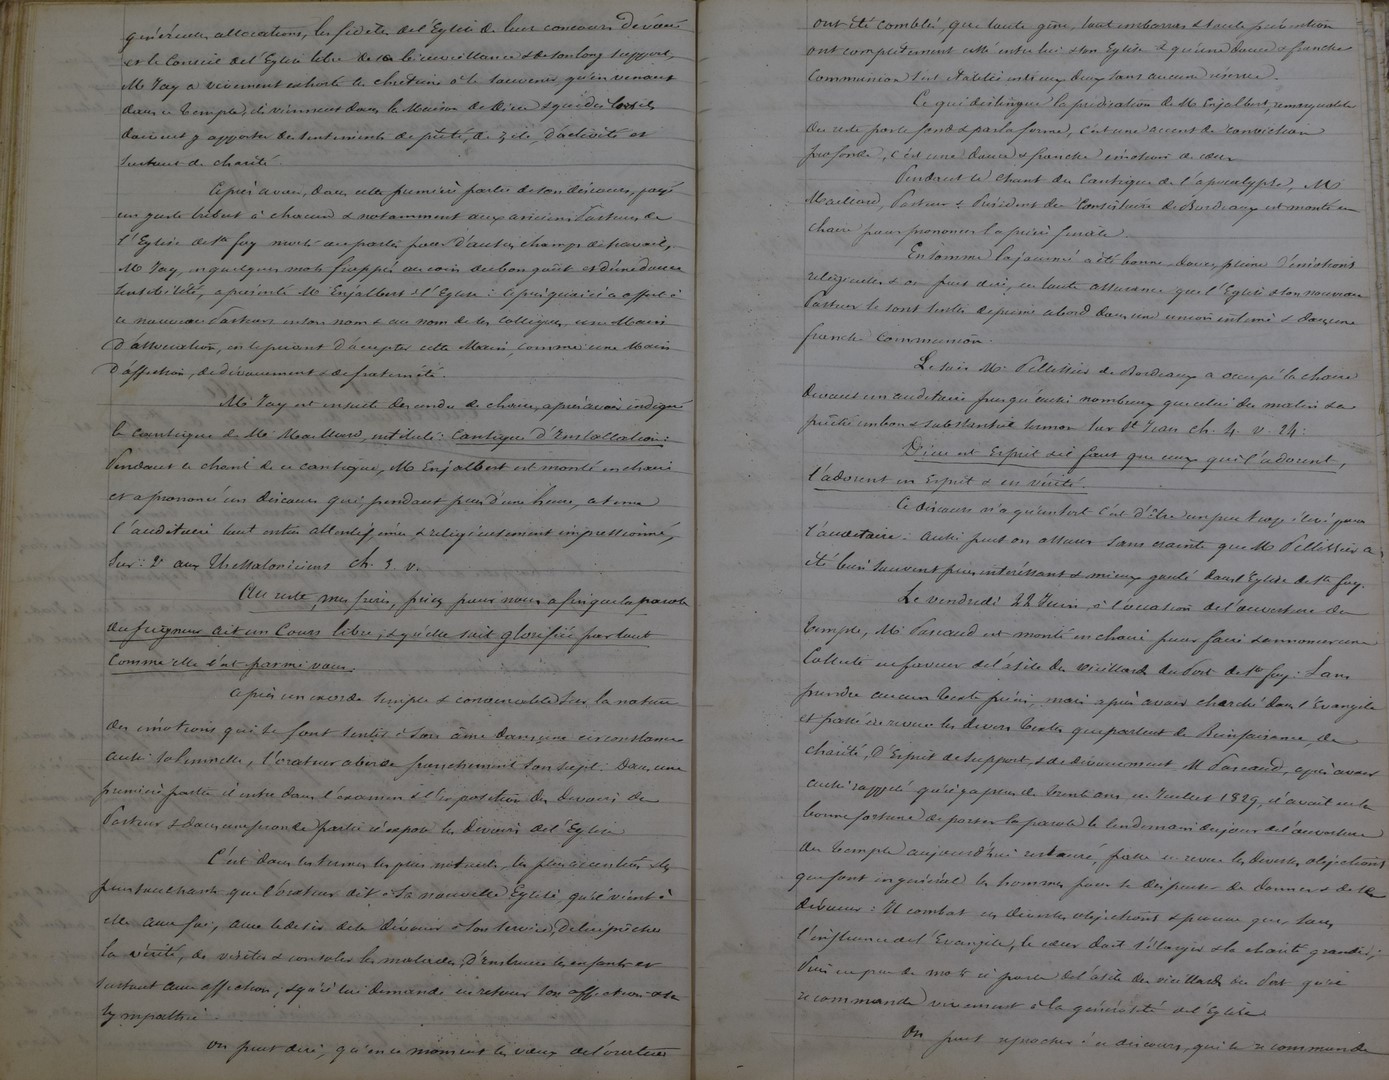 généreuses allocations, les fidèles de l'Eglise de leur concours dévoué
et le Conseil de l'Eglise libre de sa bienveillance & de son long support,
M. Jay a vivement exhorté les chrétiens à se souvenir qu'en venant
dans ce temple, ils viennent dans la Maison de Dieu & que dès lors ils
doivent y apporter des sentiments de piété, de zèle, d'activité et
surtout de charité.
Après avoir, dans cette première partie de son discours, payé
un juste tribut à chacun & notamment aux anciens Pasteurs de
l'Eglise de Ste foy morts ou partis pour d'autres champs de travail,
M. Jay, en quelques mots frappés au coin du bon goût et d'une douce
sensibilité, a présenté M. Enjalbert à l'Eglise : Après quoi il a offert à
ce nouveau Pasteur en son nom & au nom de ses collègues, une Main
D'association, en le priant d'accepter cette Main, comme une Main
D'affection, de dévouement & de fraternité.
M. Jay est ensuite descendu de chaire, après avoir indiqué
le cantique de M. Maillard, intitulé : Cantique d'Installation :
Pendant le chant de ce cantique, M. Enjalbert est monté en chaire
et a prononcé un discours qui, pendant plus d'une heure, a tenu
l'auditoire tout entier attentif, ému & religieusement impressionné,
Sur : 2e aux Thessaloniciens ch. 3. v.
Au reste, mes frères, priez pour nous afin que la parole
du Seigneur ait un Cours libre, & qu'elle soit glorifiée partout
Comme elle l'est parmi vous.
Après un exorde simple & convenable sur la nature
des émotions qui se font sentir à son âme dans une circonstance
aussi solennelle, l'orateur aborde franchement son sujet : Dans une
première partie il entre dans l'examen & l'exposition des Devoirs du
Pasteur & dans une seconde partie il expose les Devoirs de l'Eglise
C'est dans les termes les plus naturels, les plus accentués & les
plus touchants que l'orateur dit à sa nouvelle Eglise qu'il vient à
elle avec foi, avec le désir de se dévouer à son service, de lui prêcher
la vérité, de visiter & consoler les malades, d'instruire les enfants et
surtout avec affection ; & qu'il lui demande en retour son affection & sa
sympathie.
On peut dire, qu'en ce moment les vœux de l'orateur
ont été comblés, que toute gêne, tout embarras & toute prévention
ont complètement cessé entre lui & son Eglise & qu'une douce & franche
Communion s'est établie entre eux deux sans aucune réserve.
Ce qui distingue la prédication de M. Enjalbert, remarquable
du reste par le fond & par la forme, c'est un accent de conviction
profonde, c'est une douce & franche émotion de cœur
Pendant le chant du Cantique de l'apocalypse, M.
Maillard, Pasteur & Président du Consistoire de Bordeaux est monté en
chaire pour prononcer la prière finale.
En somme la journée a été bonne, douce, pleine d'émotions
religieuses & on peut dire, en toute assurance que l'Eglise & son nouveau
Pasteur se sont sentis de prime abord dans une union intime & dans une
franche Communion.
Le soir M. Pellissier de Bordeaux a occupé la chaire
devant un auditoire presque aussi nombreux que celui du matin & a
prêché un bon & substantiel sermon sur St Jean ch. 4. v. 24 :
Dieu est Esprit & il faut que ceux qui l'adorent,
l'adorent en Esprit & en vérité.
Ce discours n'a qu'un tort c'est d'être un peu trop élevé pour
l'auditoire : aussi peut on assurer sans crainte que M. Pellissier a
été bien souvent plus intéressant & mieux goûté dans l'Eglise de Ste foy.
Le vendredi 22 Juin, à l'occasion de l'ouverture du
Temple, M. Pascaud est monté en chaire pour faire & annoncer une
Collecte en faveur de l'asile des vieillards du Port de Ste foy : Sans
prendre aucun texte précis, mais après avoir cherché dans l'Evangile
et passé en revue les divers textes qui parlent de Bienfaisance, de
charité, d'Esprit de support, & de dévouement M. Pascaud, après avoir
aussi rappelé qu'il y a plus de trente ans en Juillet 1829, il avait eu la
bonne fortune de porter la parole le lendemain du jour de l'ouverture
du temple aujourd'hui restauré, passe en revue les diverses objections
que font en général les hommes pour se dispenser de donner & de se
dévouer : Il combat ces diverses objections & prouve que, sous
l'influence de l'Evangile, le cœur doit s'élargir & la charité grandir ;
Puis en peu de mots il parle de l'asile des vieillards du Port qu'il
recommande vivement à la générosité de l'Eglise
On peut reprocher à ce discours, qui se recommande